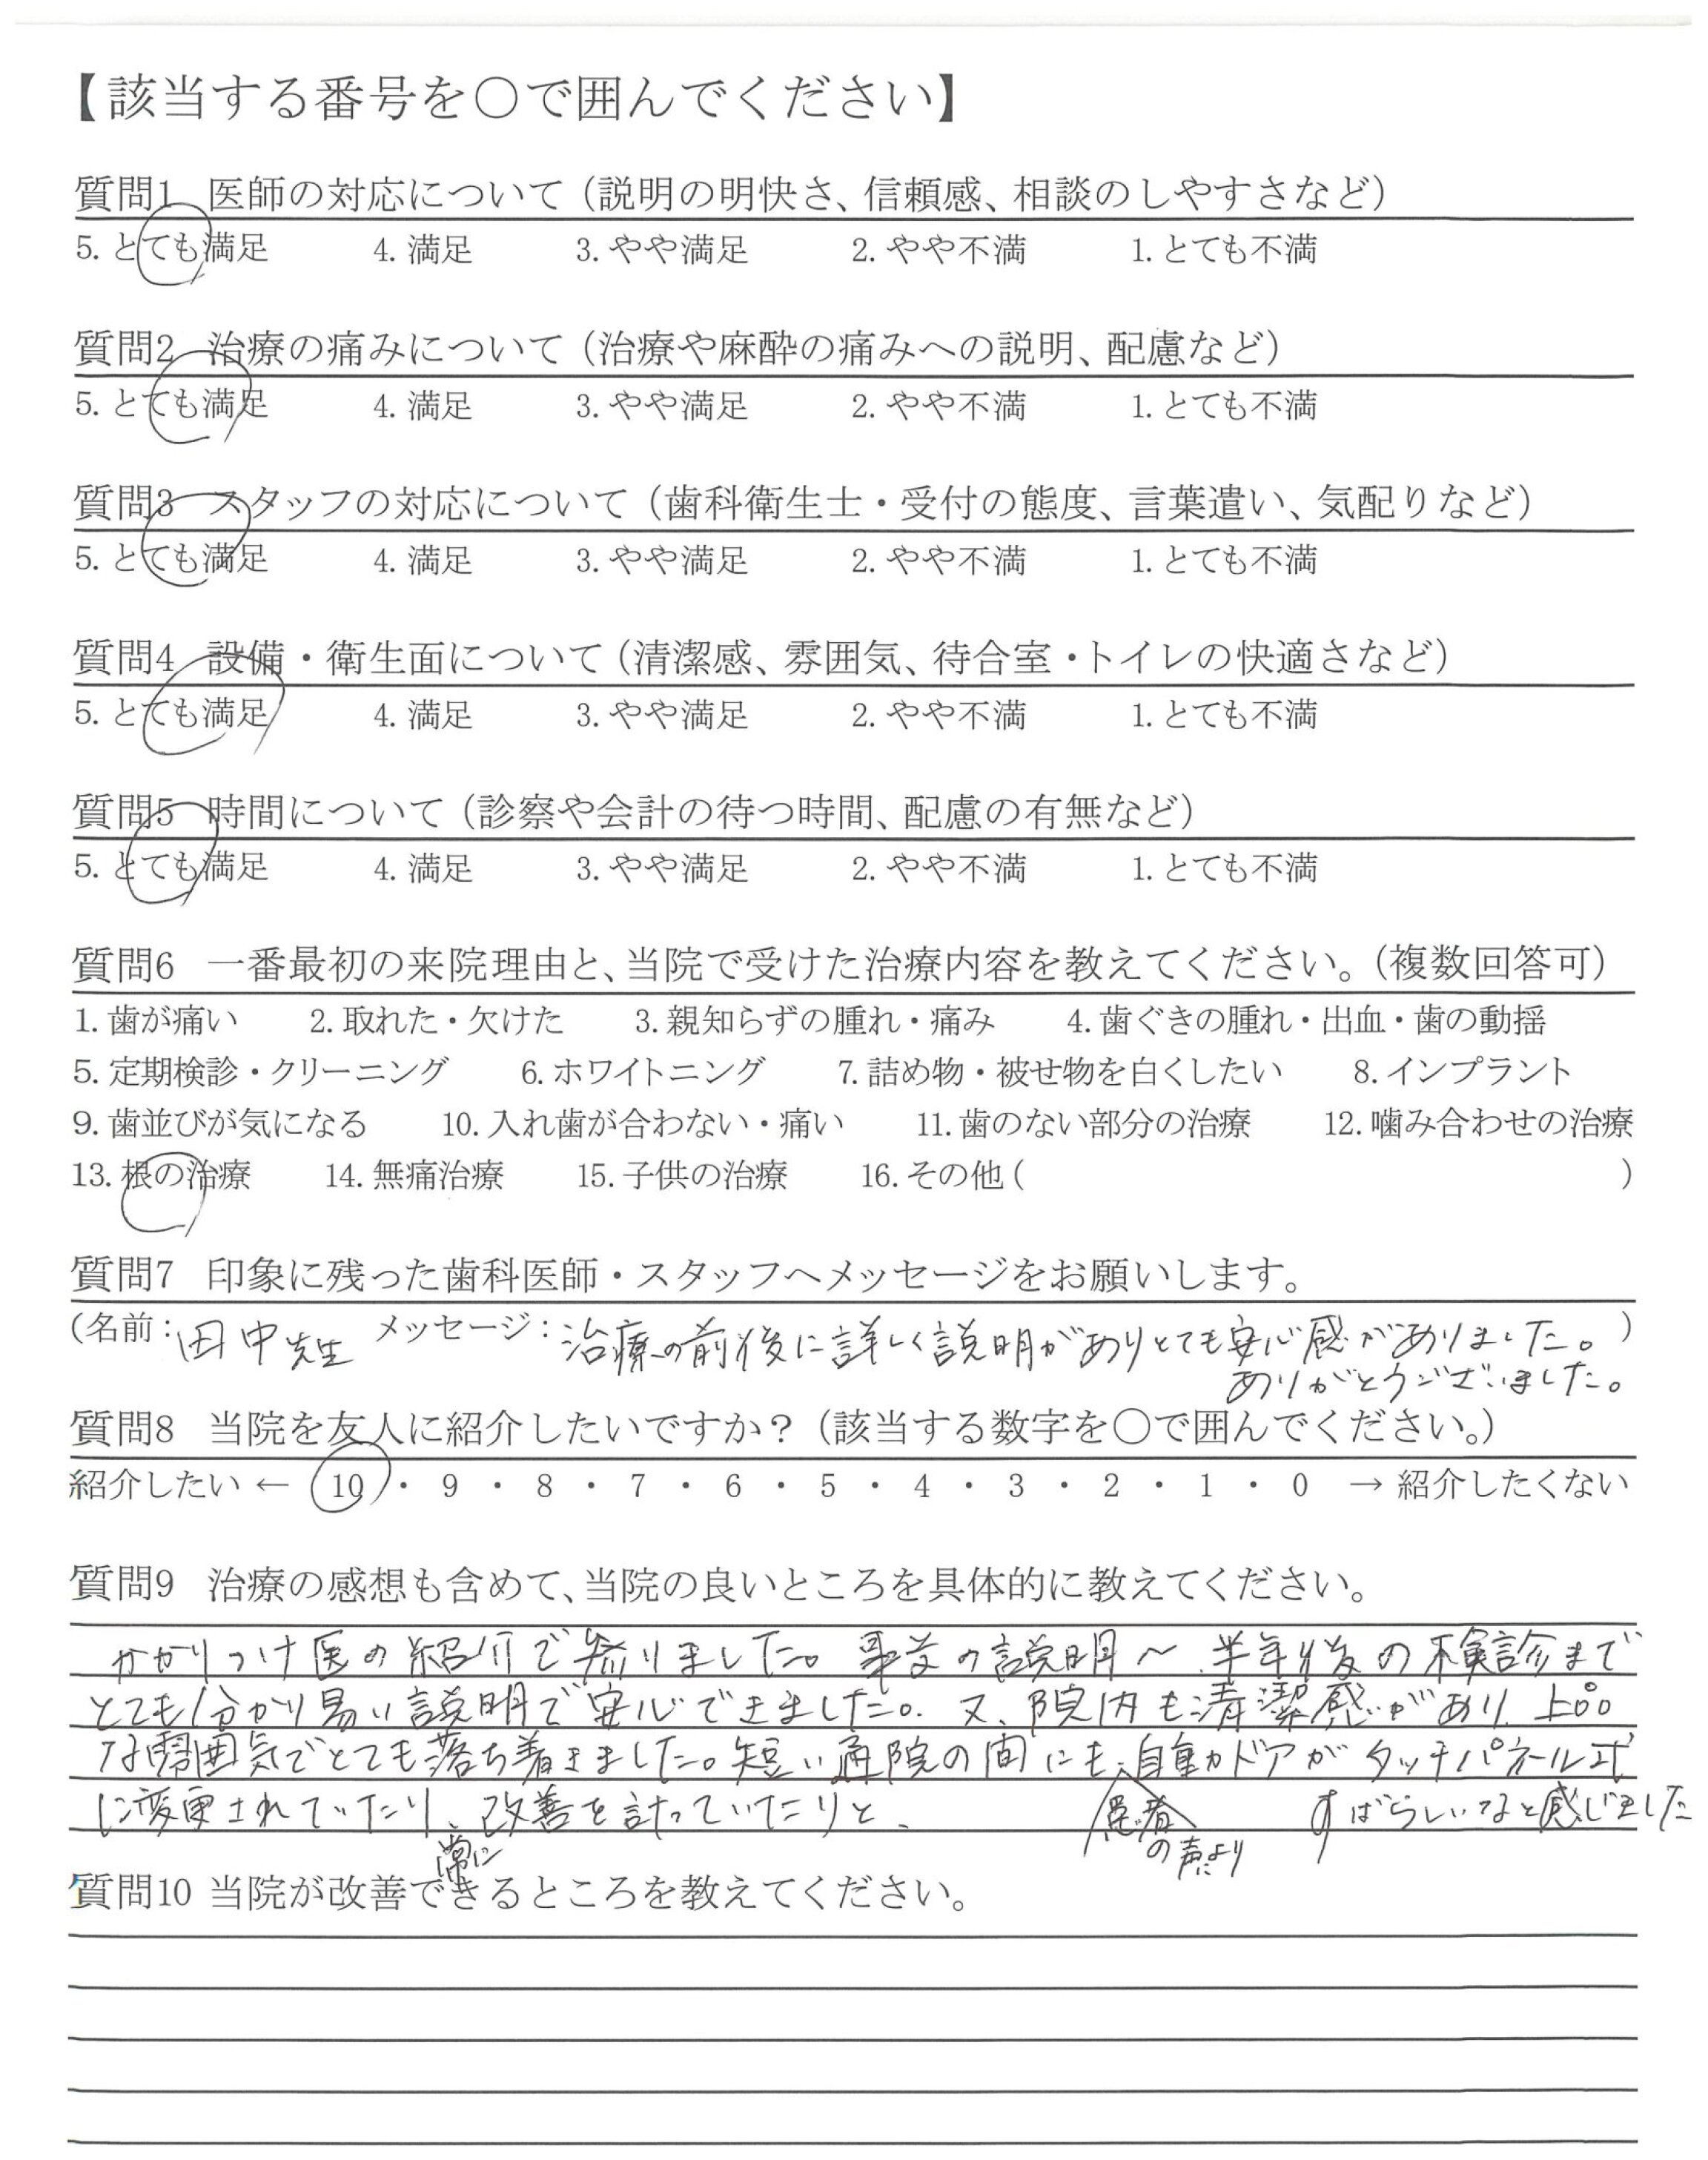 【該当する番号を〇で囲んでください】
質問1 医師の対応について（説明の明快さ、信頼感、相談のしやすさなど）
5. とても満足 4. 満足 3. やや満足 2. やや不満 1. とても不満
質問2 治療の痛みについて（治療や麻酔の痛みへの説明、配慮など）
5. とても満足 4. 満足 3. やや満足 2. やや不満 1. とても不満
質問3 スタッフの対応について（歯科衛生士・受付の態度、言葉遣い、気配りなど）
5. とても満足 4. 満足 3. やや満足 2. やや不満 1. とても不満
質問4 設備・衛生面について（清潔感、雰囲気、待合室・トイレの快適さなど）
5. とても満足 4. 満足 3. やや満足 2. やや不満 1. とても不満
質問5 時間について（診察や会計の待つ時間、配慮の有無など）
5. とても満足 4. 満足 3. やや満足 2. やや不満 1. とても不満
質問6 一番最初の来院理由と、当院で受けた治療内容を教えてください。（複数回答可）
1. 歯が痛い 2. 取れた・欠けた 3. 親知らずの腫れ・痛み 4. 歯ぐきの腫れ・出血・歯の動揺
5. 定期検診・クリーニング 6. ホワイトニング 7. 詰め物・被せ物を白くしたい 8. インプラント
9. 歯並びが気になる 10. 入れ歯が合わない・痛い 11. 歯のない部分の治療 12. 噛み合わせの治療
13. 根の治療 14. 無痛治療 15. 子供の治療 16. その他（ ）
質問7 印象に残った歯科医師・スタッフへメッセージをお願いします。
（名前：田中先生 メッセージ：治療の前後に詳しく説明がありとても安心感がありました。）
ありがとうございました。
質問8 当院を友人に紹介したいですか？（該当する数字を〇で囲んでください。）
紹介したい ← 10 ・ 9 ・ 8 ・ 7 ・ 6 ・ 5 ・ 4 ・ 3 ・ 2 ・ 1 ・ 0 → 紹介したくない
質問9 治療の感想も含めて、当院の良いところを具体的に教えてください。
かかりつけ医の紹介で参りました。事前の説明～半年後の検診まで
とても分かり易い説明で安心できました。又、院内も清潔感があり、上品
な雰囲気でとても落ち着きました。短い通院の間にも、自動ドアがタッチパネール式
に変更されていたり、改善を計っていたりと、 すばらしいなと感じました
患者
の声により
常に
質問10 当院が改善できるところを教えてください。